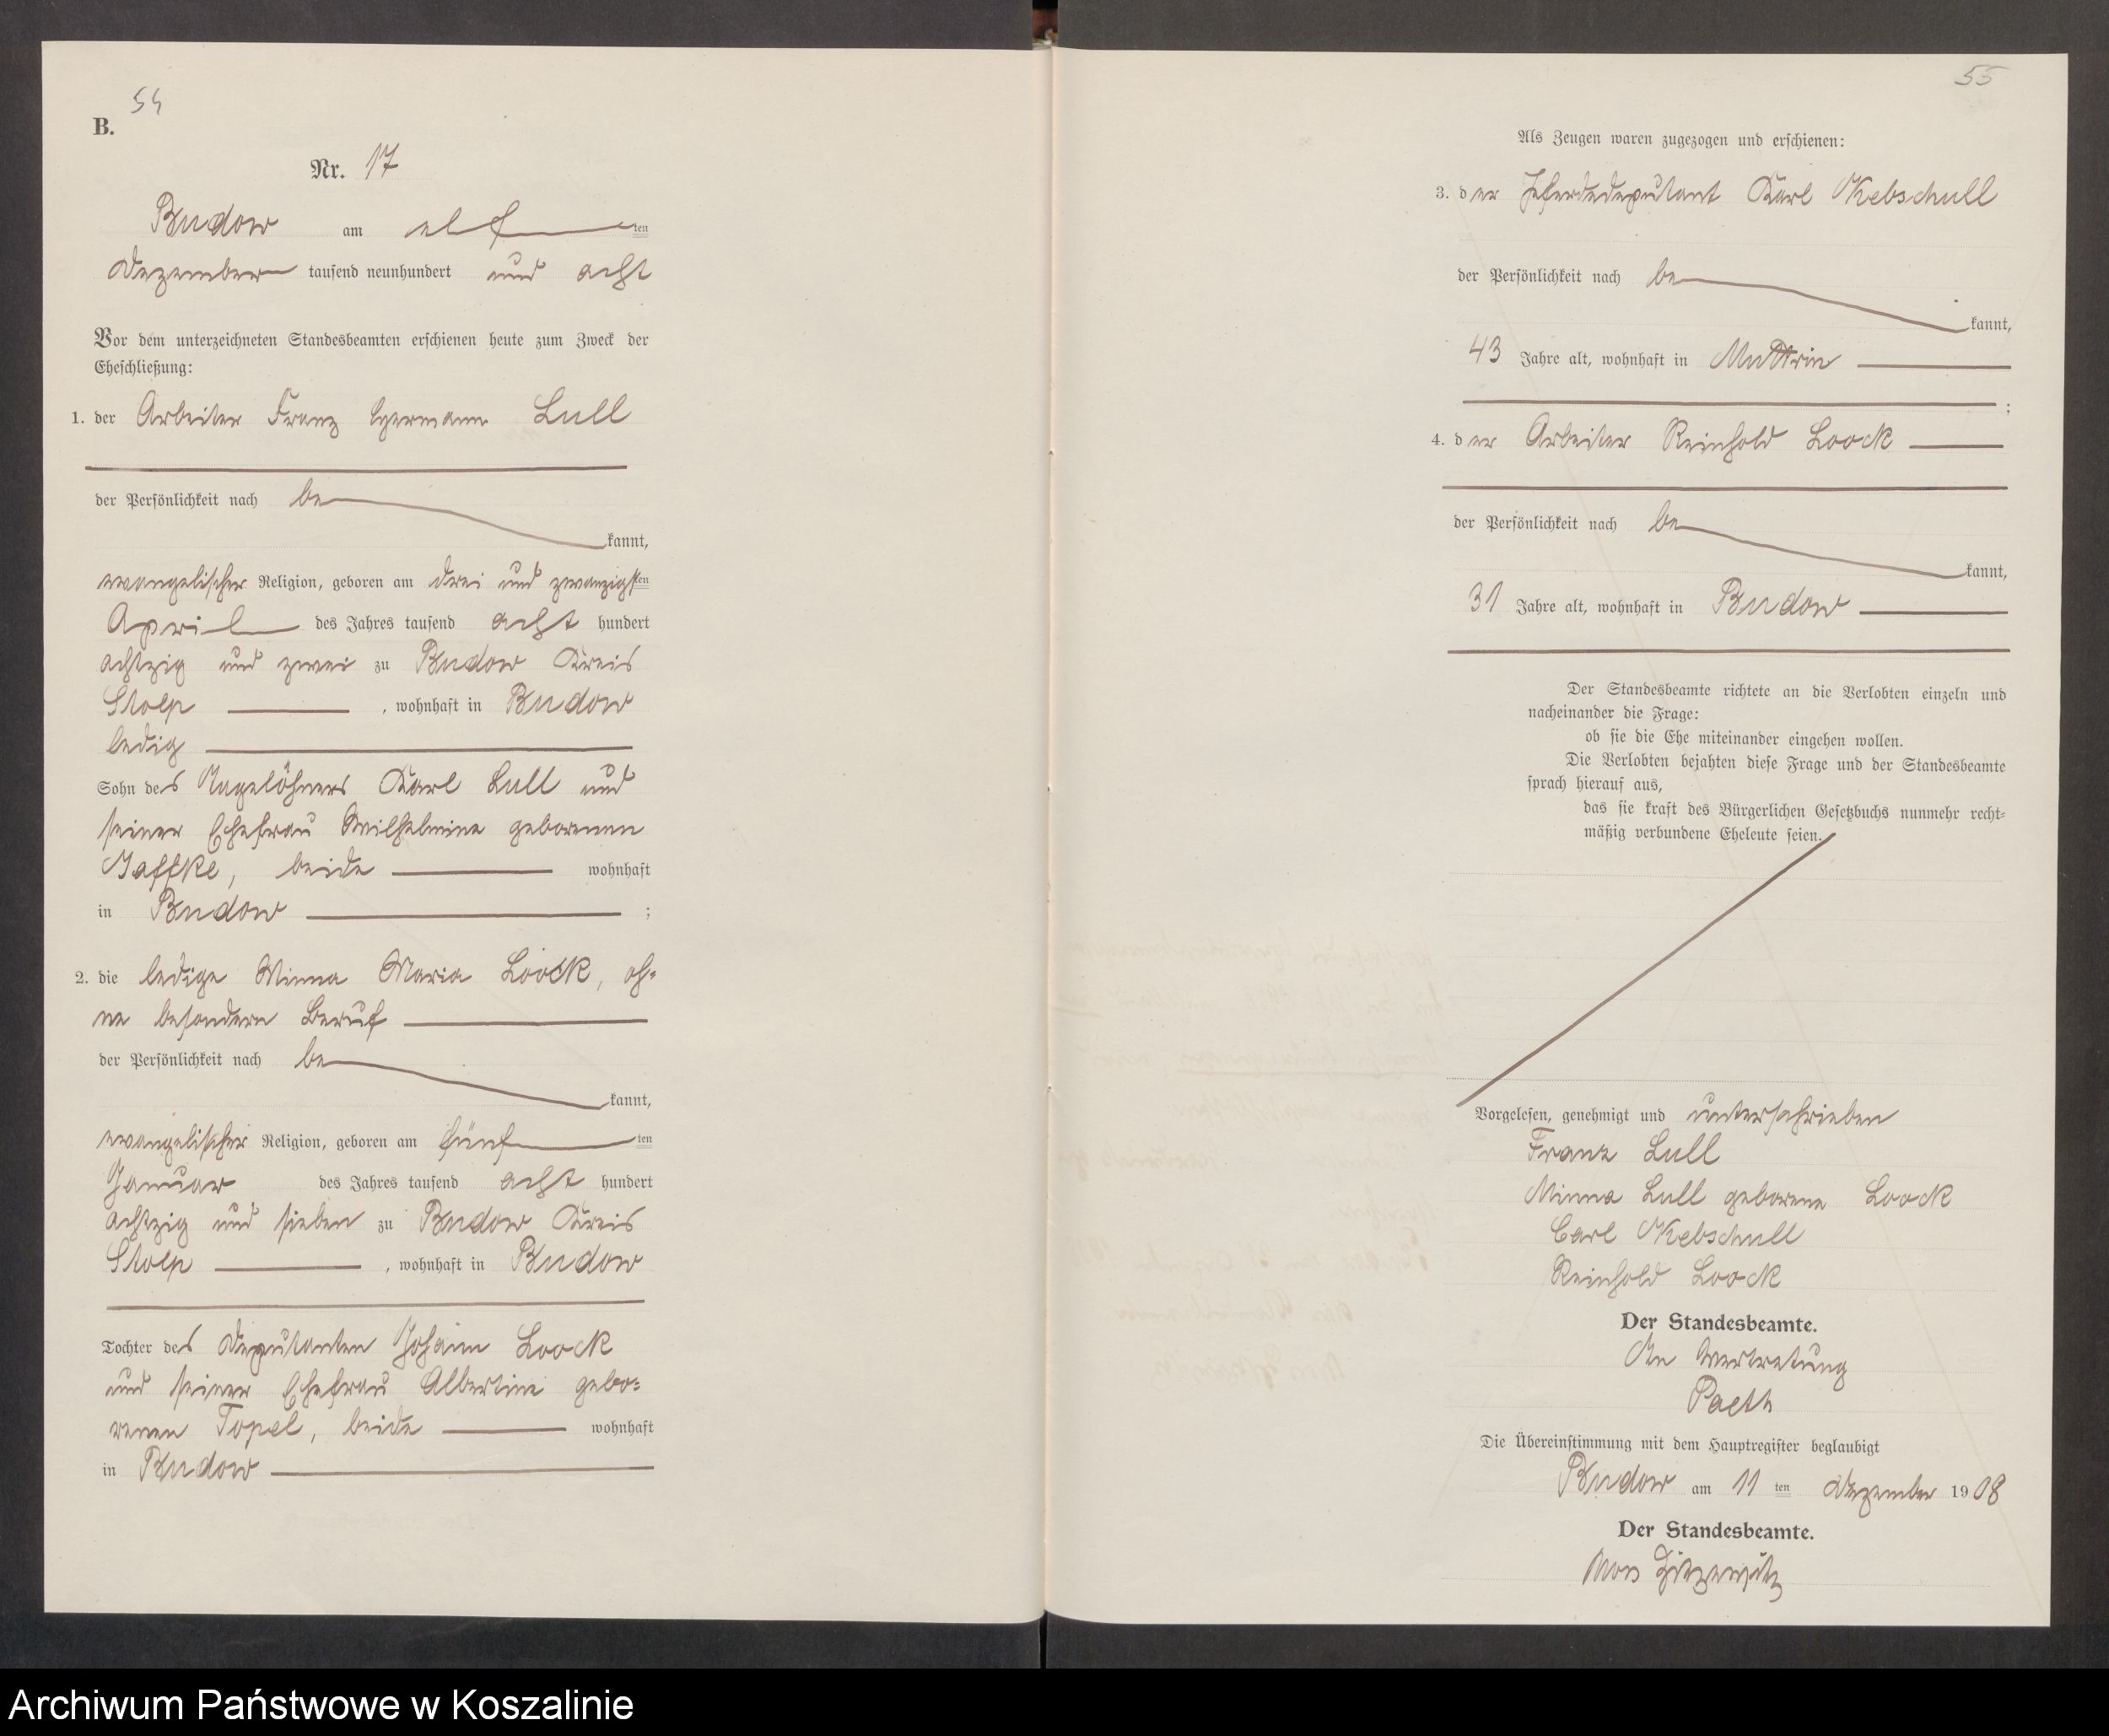 54
B.
Nr. 17
Budow am elften
Dezember tausend neunhundert und acht
Vor dem unterzeichneten Standesbeamten erschienen heute zum Zweck der
Eheschließung:
1. der Arbeiter Franz Hermann Lull
der Persönlichkeit nach be
kannt,
evangelischer Religion, geboren am drei und zwanzigsten
April des Jahres tausend acht hundert
achtzig und zwei zu Budow Kreis
Stolp , wohnhaft in Budow
ledig
Sohn des Tagelöhners Karl Lull und
seiner Ehefrau Wilhelmine geborenen
Jaffke, beide wohnhaft
in Budow ;
2. die ledige Minna Maria Loock, oh=
ne besondern Beruf
der Persönlichkeit nach be
kannt,
evangelischer Religion, geboren am fünften
Januar des Jahres tausend acht hundert
achtzig und sieben zu Budow Kreis
Stolp , wohnhaft in Budow
Tochter des Deputanten Johann Loock
und seiner Ehefrau Albertine gebo=
renen Topel, beide wohnhaft
in Budow
55
Als Zeugen waren zugezogen und erschienen:
3. der Pferdedeputant Karl Kebschull
der Persönlichkeit nach be
kannt,
43 Jahre alt, wohnhaft in Muttrin
;
4. der Arbeiter Reinhold Loock
der Persönlichkeit nach be
kannt,
31 Jahre alt, wohnhaft in Budow
Der Standesbeamte richtete an die Verlobten einzeln und
nacheinander die Frage:
ob sie die Ehe miteinander eingehen wollen.
Die Verlobten bejahten diese Frage und der Standesbeamte
sprach hierauf aus,
das sie kraft des Bürgerlichen Gesetzbuchs nunmehr recht=
mäßig verbundene Eheleute seien.
Vorgelesen, genehmigt und unterschrieben
Franz Lull
Minna Lull geborene Loock
Carl Kebschull
Reinhold Loock
Der Standesbeamte.
In Vertretung
Paeth
Die Übereinstimmung mit dem Hauptregister beglaubigt
Budow am 11 ten Dezember 1908
Der Standesbeamte.
von Zitzewitz
Archiwum Państwowe w Koszalinie